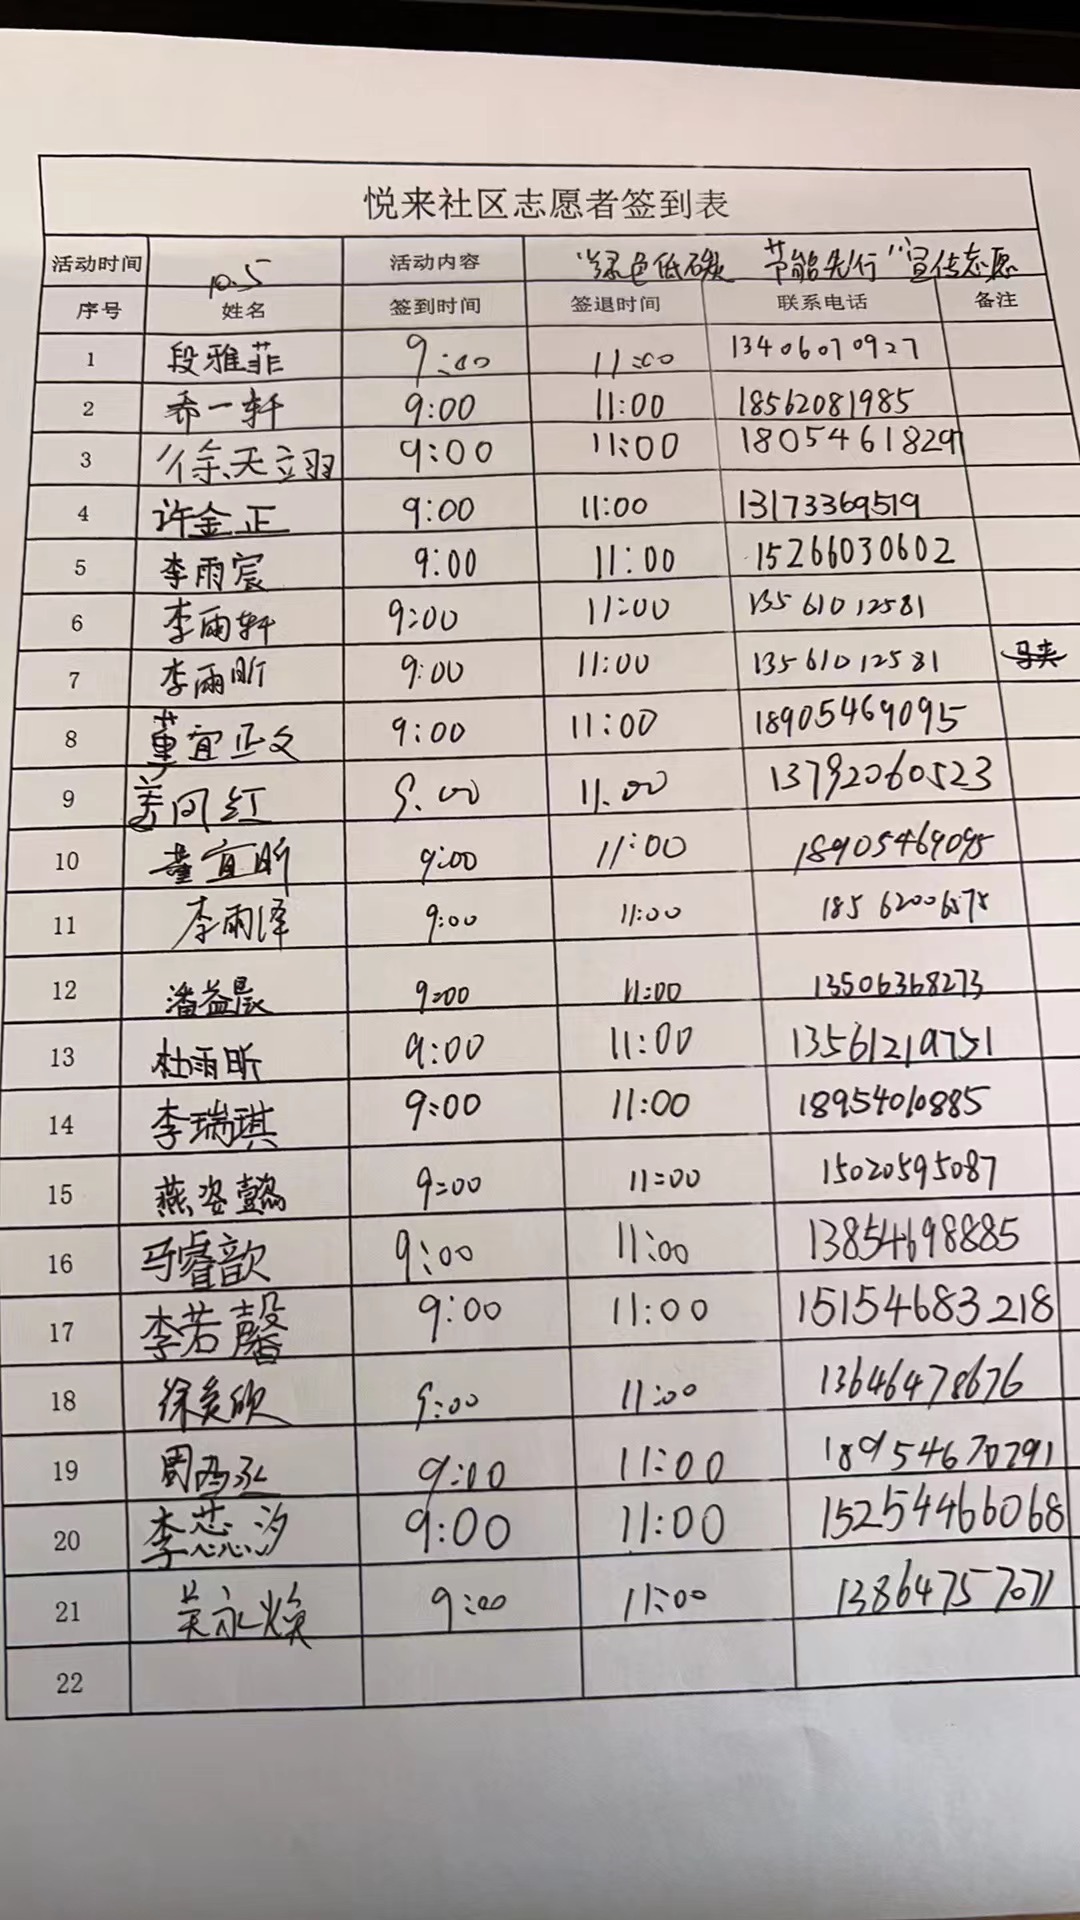 悦来社区志愿者签到表
活动时间 10.5 活动内容 "绿色低碳 节能先行"宣传志愿
序号 姓名 签到时间 签退时间 联系电话 备注
1 段雅菲 9:00 11:00 13406070927
2 乔一轩 9:00 11:00 18562081985
3 徐天翊 9:00 11:00 18054618291
4 许金正 9:00 11:00 13173369519
5 李雨宸 9:00 11:00 15266030602
6 李雨轩 9:00 11:00 13561012581
7 李雨昕 9:00 11:00 13561012581
8 董宜政 9:00 11:00 18905469095
9 9:00 11:00 13792060523
10 董宜昕 9:00 11:00 18905469095
11 李雨泽 9:00 11:00 18562006575
12 潘益晨 9:00 11:00 13506368273
13 杜雨昕 9:00 11:00 13561219751
14 李瑞琪 9:00 11:00 18954010885
15 燕姿懿 9:00 11:00 15020595087
16 马睿歆 9:00 11:00 13854698885
17 李若馨 9:00 11:00 15154683218
18 9:00 11:00 13646478676
19 9:00 11:00 18954670791
20 李芯汐 9:00 11:00 15254466068
21 吴永焕 9:00 11:00 13864757071
22